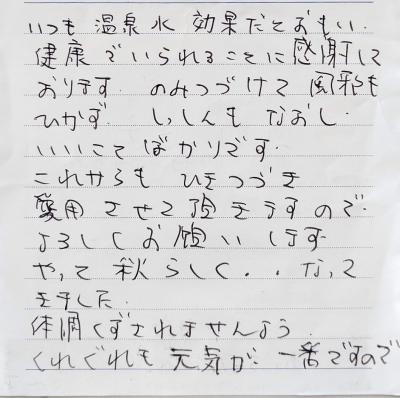 いつも 温泉水 効果だとおもい.
健康 でいられることに感謝して
おります. のみつづけて 風邪も
ひかず. しっしんも なおし.
いいことばかりです.
これからも ひきつづき
愛用 させて頂きますので.
よろしくお願いします.
やって 秋らしく..なって
きました.
体調くずされませんよう.
くれぐれも 元気が. 一番ですので